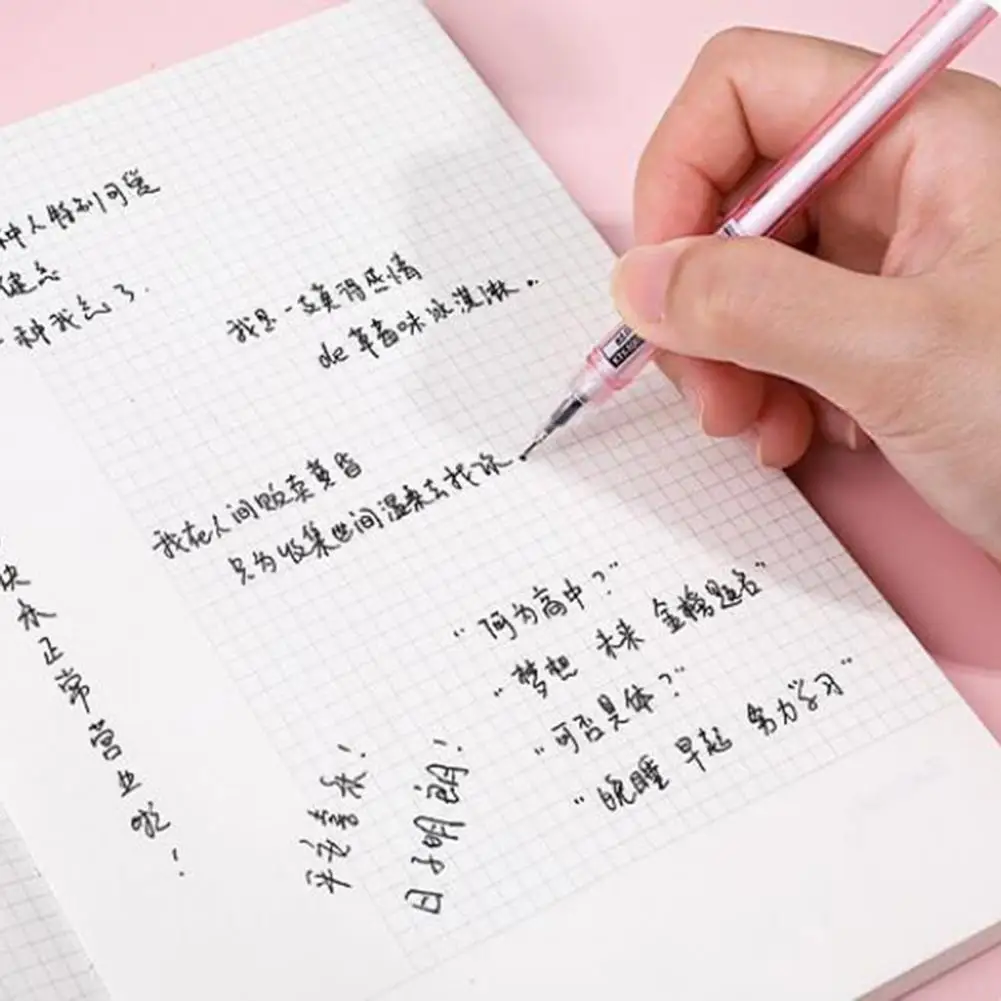 种人特别可爱
健忘
一种我忘了.
我是一支莫得感情
de草莓味冰淇淋。
我在人间贩卖黄昏
只为收集世间温柔去找你.
"何为高中?"
"梦想 未来 金榜题名"
"可否具体?"
"晚睡 早起 努力学习"
水正常营业啦!
平安喜乐!
日子明朗!